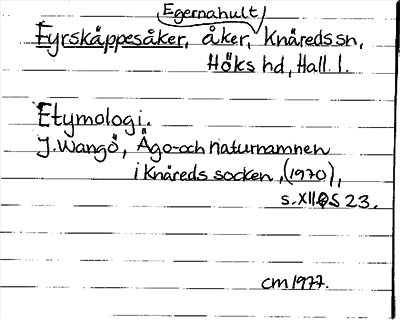 Egernahult
Fyrskäppesåker, åker, Knäreds sn,
Höks hd, Hall. l.
Etymologi.
J. Wangö, Ägo- och naturnamnen
i Knäreds socken, (1970),
s. XII o S 23.
cm 1977.